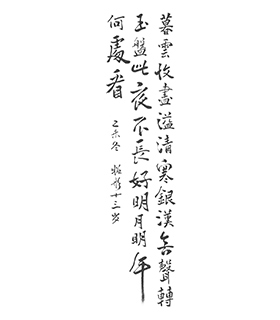 暮雲收盡溢清寒銀漢無聲轉
玉盤此夜不長好明月明年
何處看
乙未冬 十三岁